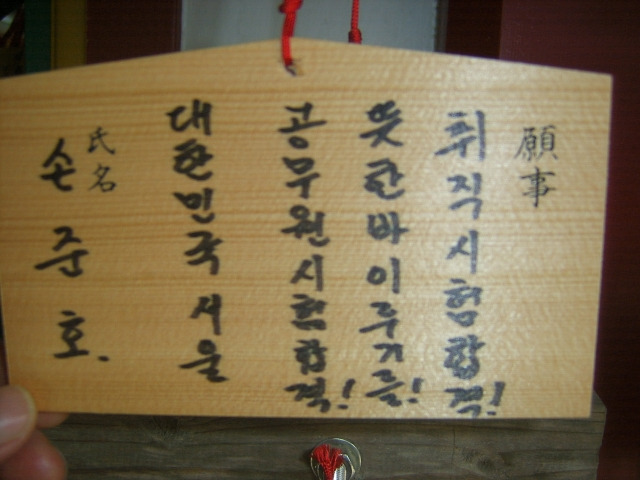 願事
취직시험합격!
뜻한바이루기를!
공무원시험합격!
대한민국 서울
氏名
손준호.